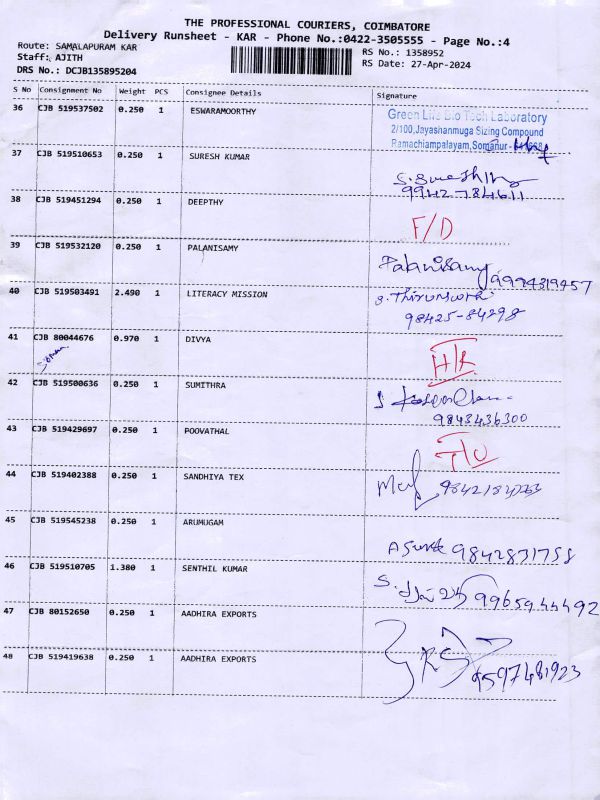 THE PROFESSIONAL COURIERS, COIMBATORE
Delivery Runsheet - KAR - Phone No.:0422-3505555 - Page No.:4
Route: SAMALAPURAM KAR
RS No.: 1358952
Staff: AJITH
RS Date: 27-Apr-2024
DRS No.: DCJB135895204
S No Consignment No Weight PCS Consignee Details Signature
36 CJB 519537502 0.250 1 ESWARAMOORTHY
Green Life Bio Tech Laboratory
2/100,Jayashanmuga Sizing Compound
Ramachiampalayam, Somanur -
37 CJB 519510653 0.250 1 SURESH KUMAR
9942-784611
38 CJB 519451294 0.250 1 DEEPTHY F/D
39 CJB 519532120 0.250 1 PALANISAMY
Palanisamy 9994319457
40 CJB 519503491 2.490 1 LITERACY MISSION
98425-84298
41 CJB 80044676 0.970 1 DIVYA
42 CJB 519500636 0.250 1 SUMITHRA
9843436300
43 CJB 519429697 0.250 1 POOVATHAL
44 CJB 519402388 0.250 1 SANDHIYA TEX
45 CJB 519545238 0.250 1 ARUMUGAM
9842831758
46 CJB 519510705 1.380 1 SENTHIL KUMAR
9965944492
47 CJB 80152650 0.250 1 AADHIRA EXPORTS
48 CJB 519419638 0.250 1 AADHIRA EXPORTS
9597481923